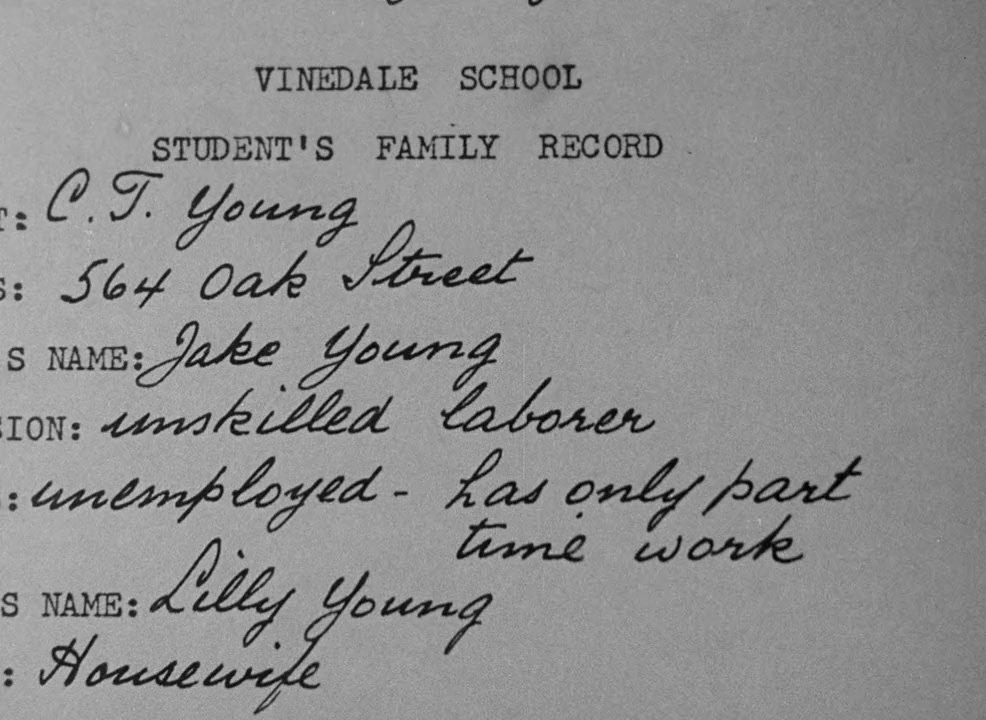 VINEDALE SCHOOL
STUDENT'S FAMILY RECORD
T: C.T. Young
S: 564 Oak Street
S NAME: Jake Young
SION: unskilled laborer
: unemployed - has only part
time work
S NAME: Lilly Young
: Housewife